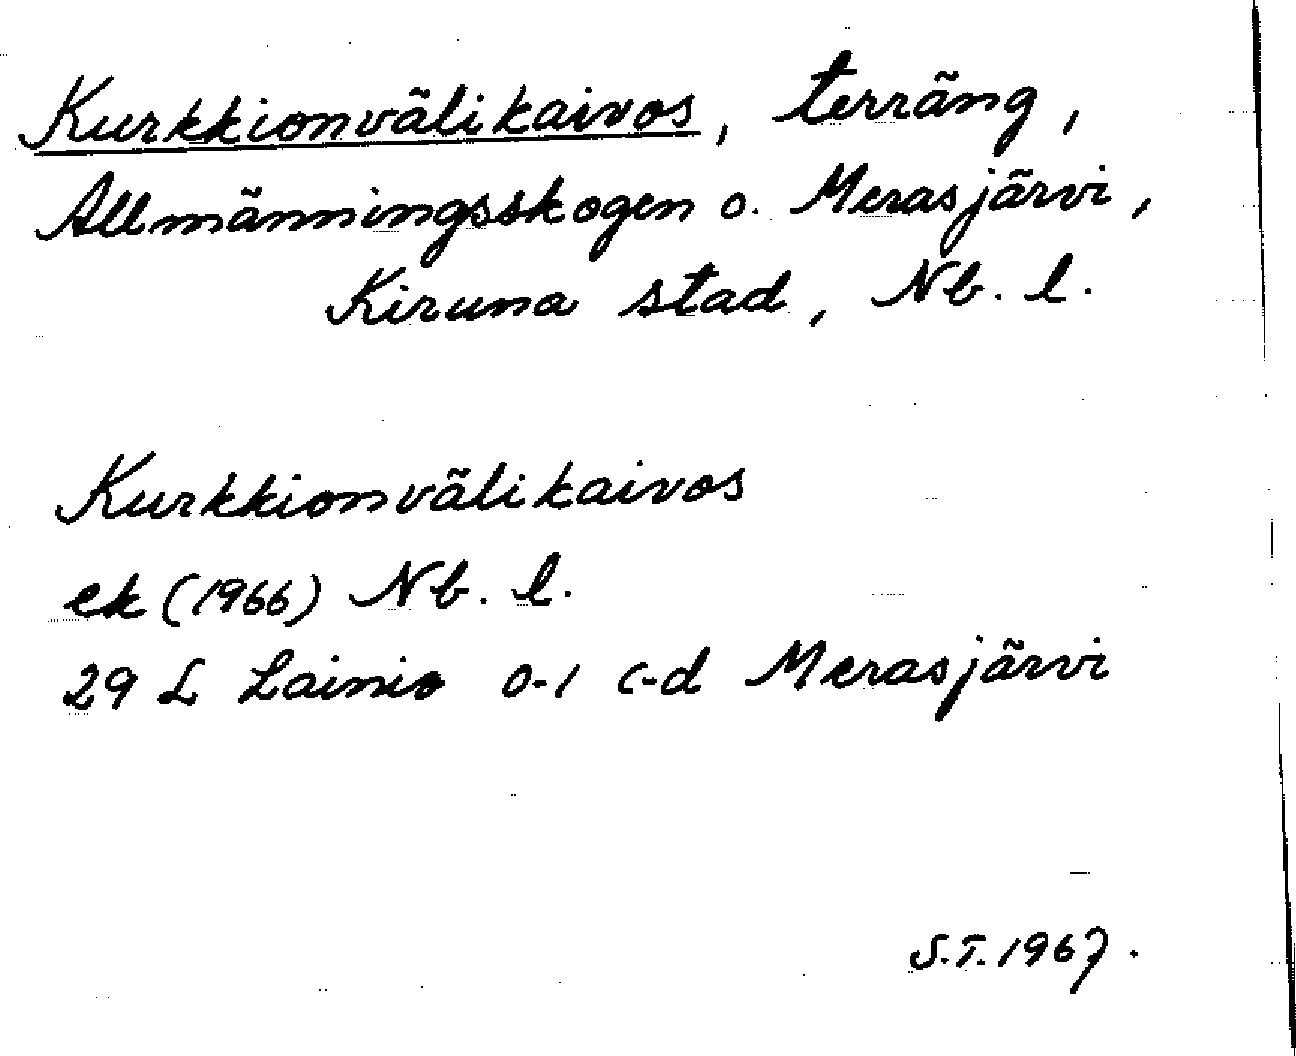 Kurkkionvälikaivos, terräng,
Allmänningsskogen o. Merasjärvi,
Kiruna stad, Nb. l.
Kurkkionvälikaivos
ek (1966) Nb. l.
29 L Lainio 0-1 c-d Merasjärvi
S.T. 1967.